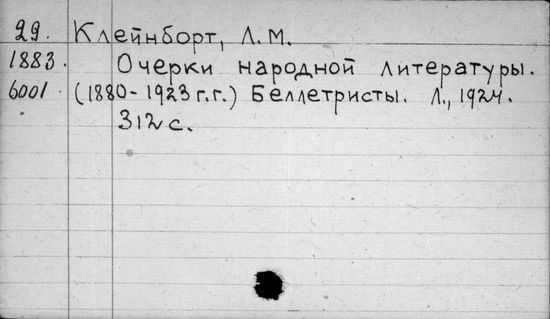 29. Клейнборт, Л.М.
1883. Очерки народной литературы.
6001. (1880-1923 г.г.) Беллетристы. Л., 1924.
312 с.